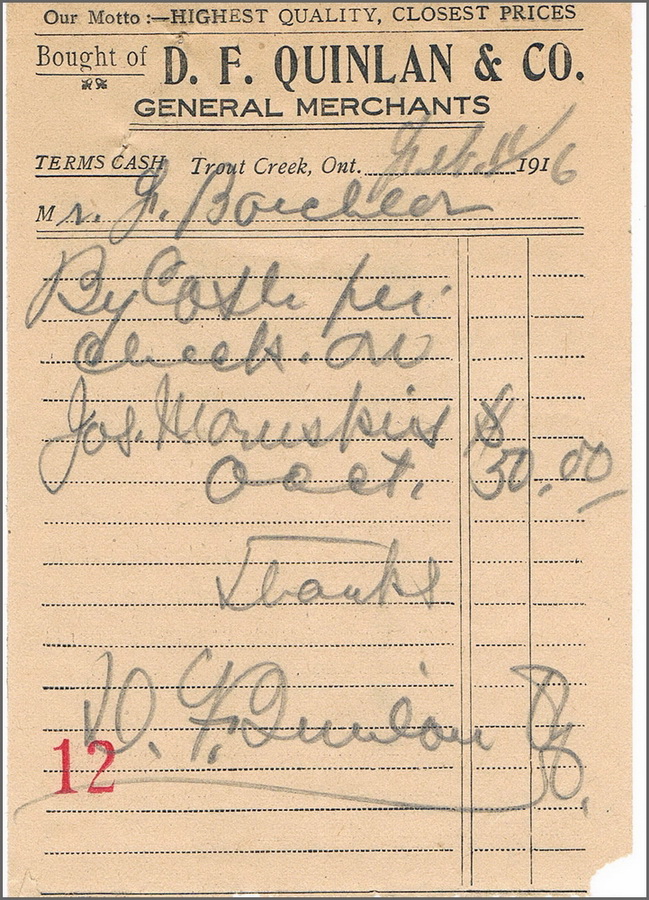 Our Motto :—HIGHEST QUALITY, CLOSEST PRICES
Bought of D. F. QUINLAN & CO.
GENERAL MERCHANTS
TERMS CASH Trout Creek, Ont. Feb. 1916
Mr. J.
By Cash per
check. on
Jos. $
acct. 50.00
Thanks
D. F. Quinlan
12